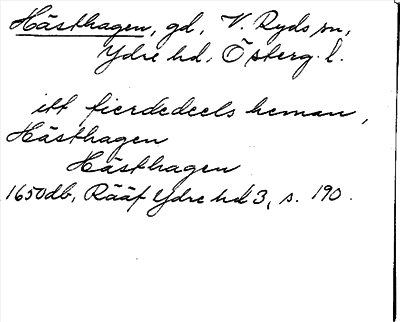 Hästhagen, gd, V. Ryds sn,
Ydre hd, Österg. l.
itt fierdedeels heman,
Hästhagen
Hästhagen
1650db, Rääf Ydre hd 3, s. 190.